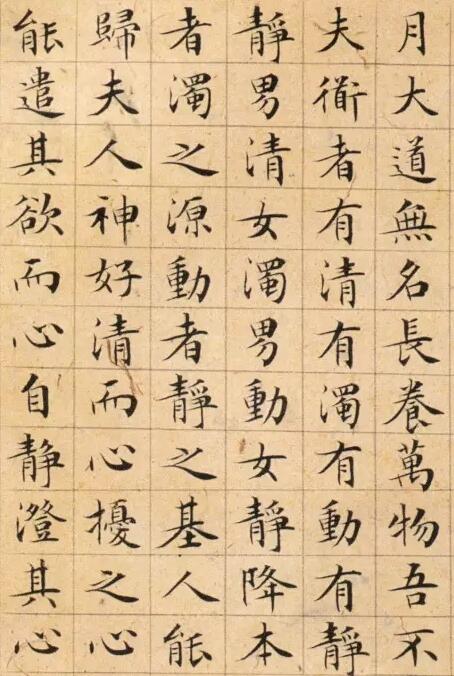 月大道無名長養萬物吾不
夫衜者有清有濁有動有靜
靜男清女濁男動女靜降本
者濁之源動者靜之基人能
歸夫人神好清而心擾之心
能遣其欲而心自静澄其心